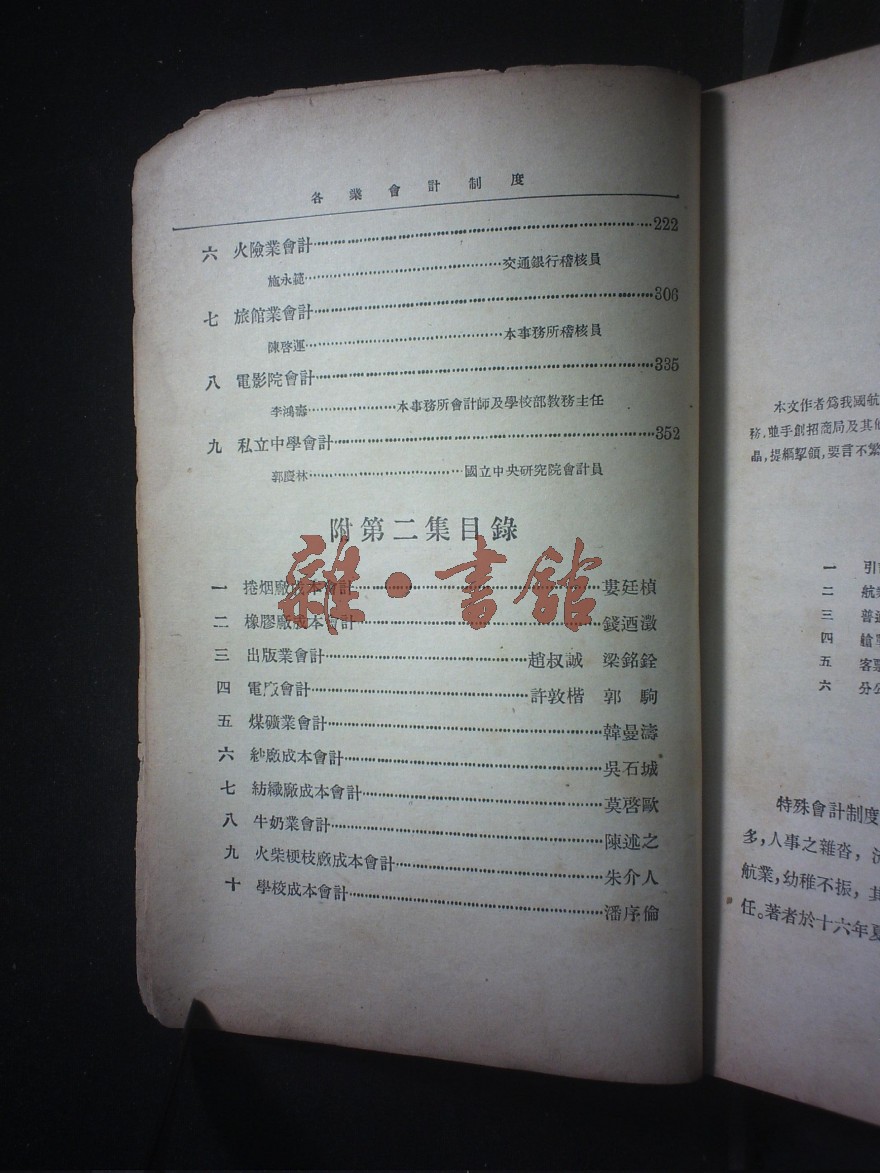 各業會計制度
六 火險業會計……222
施永範……交通銀行稽核員
七 旅館業會計……306
陳啓運……本事務所稽核員
八 電影院會計……335
李鴻壽……本事務所會計師及學校部教務主任
九 私立中學會計……352
郭慶林……國立中央研究院會計員
附第二集目錄
一 捲烟廠成本會計……婁廷楨
二 橡膠廠成本會計……錢迺澂
三 出版業會計……趙叔誠 梁銘銓
四 電廠會計……許敦楷 郭駒
五 煤礦業會計……韓曼濤
六 紗廠成本會計……吳石城
七 紡織廠成本會計……莫啓歐
八 牛奶業會計……陳述之
九 火柴梗枝廠成本會計……朱介人
十 學校成本會計……潘序倫
雜·書館
本文作者爲我國航
務,並手創招商局及其他
晶,提樞挈領,要言不繁
一 引
二 航
三 普通
四 艙單
五 客票
六 分公
特殊會計制度
多,人事之雜沓,
航業,幼稚不振,其
任。著者於十六年夏